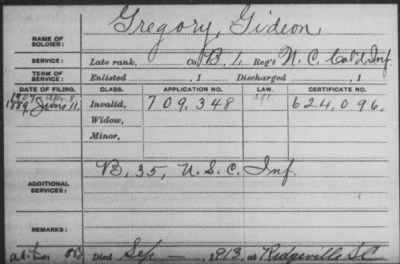 Gregory, Gideon
NAME OF SOLDIER:
SERVICE: Late rank, Co. B, 1, Reg't N. C. Col'd Inf.
TERM OF SERVICE: Enlisted , 1 Discharged , 1
DATE OF FILING. CLASS. APPLICATION NO. LAW. CERTIFICATE NO.
1907 Apr. 8
1889, June 11, Invalid, 709,348 624,096.
Widow,
Minor,
ADDITIONAL SERVICES: B, 35, U. S. C. Inf.
REMARKS:
Died Sep — , 1913, at Ridgeville S.C.